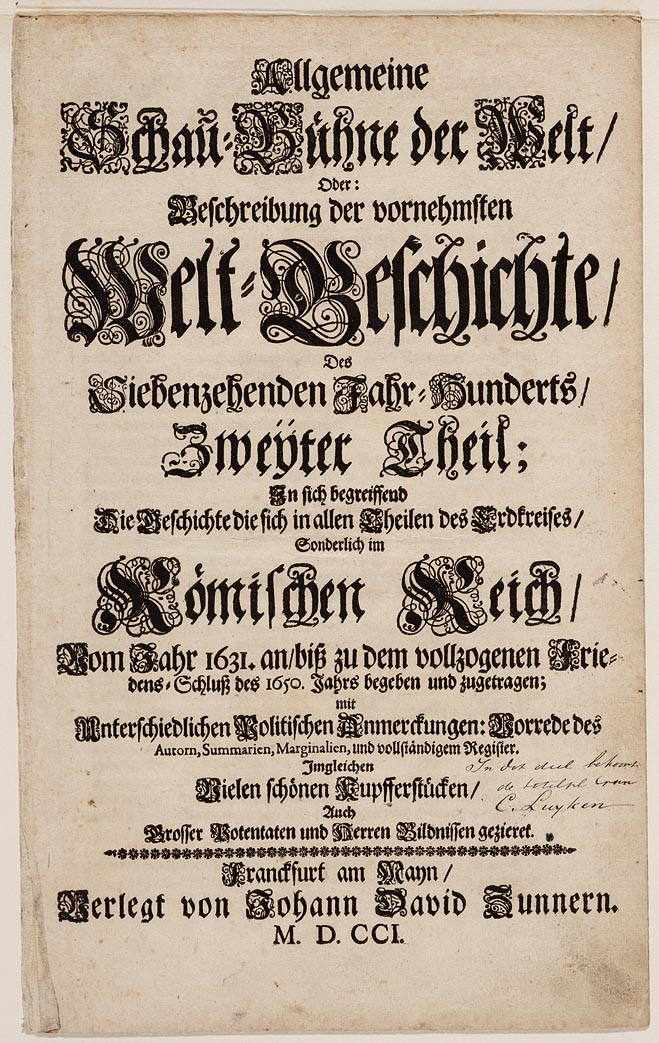 Allgemeine
Schau-Bühne der Welt/
Oder:
Beschreibung der vornehmsten
Welt-Geschichte/
Des
Siebenzehenden Jahr-Hunderts/
Zweÿter Theil;
In sich begreiffend
Die Geschichte die sich in allen Theilen des Erdkreises/
Sonderlich im
Römischen Reich/
Vom Jahr 1631. an/biß zu dem vollzogenen Frie-
dens-Schluß des 1650. Jahrs begeben und zugetragen;
mit
Unterschiedlichen Politischen Anmerckungen: Vorrede des
Autorn, Summarien, Marginalien, und vollständigem Register.
Imgleichen
Vielen schönen Kupfferstücken/
Auch
Grosser Potentaten und Herren Bildnissen gezieret.
In dit deel behoort
de titelpl van
C. Luyken
Franckfurt am Mayn/
Verlegt von Johann David Zunnern.
M. D. CCI.